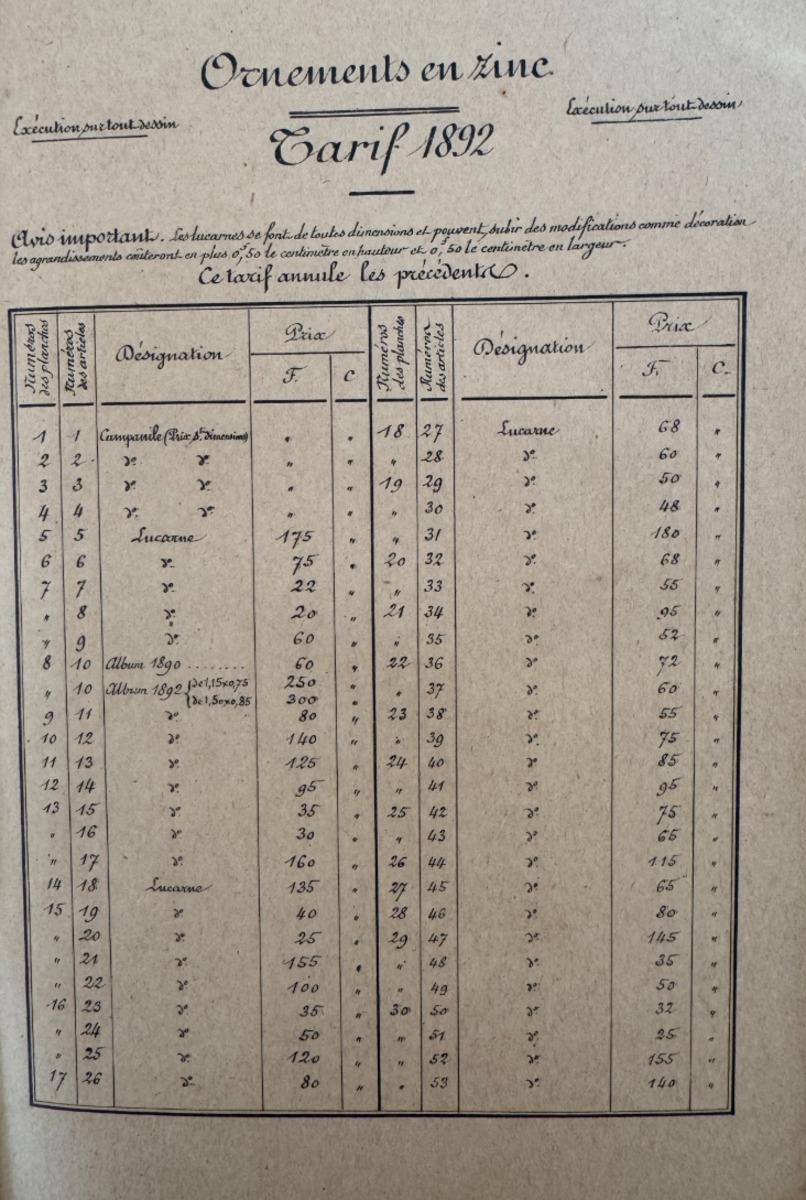 Ornements en zinc
Exécution sur tout dessin
Exécution sur tout dessin
Tarif 1892
Avis important. Les lucarnes se font de toutes dimensions et peuvent subir des modifications comme décoration
les agrandissements coûteront en plus 0,f50 le centimètre en hauteur et 0,f50 le centimètre en largeur.
Ce tarif annule les précédents.
Numéros des planches Numéros des articles Désignation Prix F. C Numéros des planches Numéros des articles Désignation Prix F. C.
1 1 Campanile (Prix st dimensions) " " 18 27 Lucarne 68 "
2 2 do do " " " 28 do 60 "
3 3 do do " " 19 29 do 50 "
4 4 do do " " " 30 do 48 "
5 5 Lucarne 175 " " 31 do 180 "
6 6 do 75 " 20 32 do 68 "
7 7 do 22 " " 33 do 55 "
" 8 do 20 " 21 34 do 95 "
" 9 do 60 " " 35 do 52 "
8 10 Album 1890 ........ 60 " 22 36 do 72 "
" 10 Album 1892 { de 1,15x0,75 250 " " 37 do 60 "
{ de 1,50x0,85 300 "
9 11 do 80 " 23 38 do 55 "
10 12 do 140 " " 39 do 75 "
11 13 do 125 " 24 40 do 85 "
12 14 do 95 " " 41 do 95 "
13 15 do 35 " 25 42 do 75 "
" 16 do 30 " " 43 do 65 "
" 17 do 160 " 26 44 do 115 "
14 18 Lucarne 135 " 27 45 do 65 "
15 19 do 40 " 28 46 do 80 "
" 20 do 25 " 29 47 do 145 "
" 21 do 155 " " 48 do 35 "
" 22 do 100 " " 49 do 50 "
16 23 do 35 " 30 50 do 32 "
" 24 do 50 " " 51 do 25 "
" 25 do 120 " " 52 do 155 "
17 26 do 80 " " 53 do 140 "